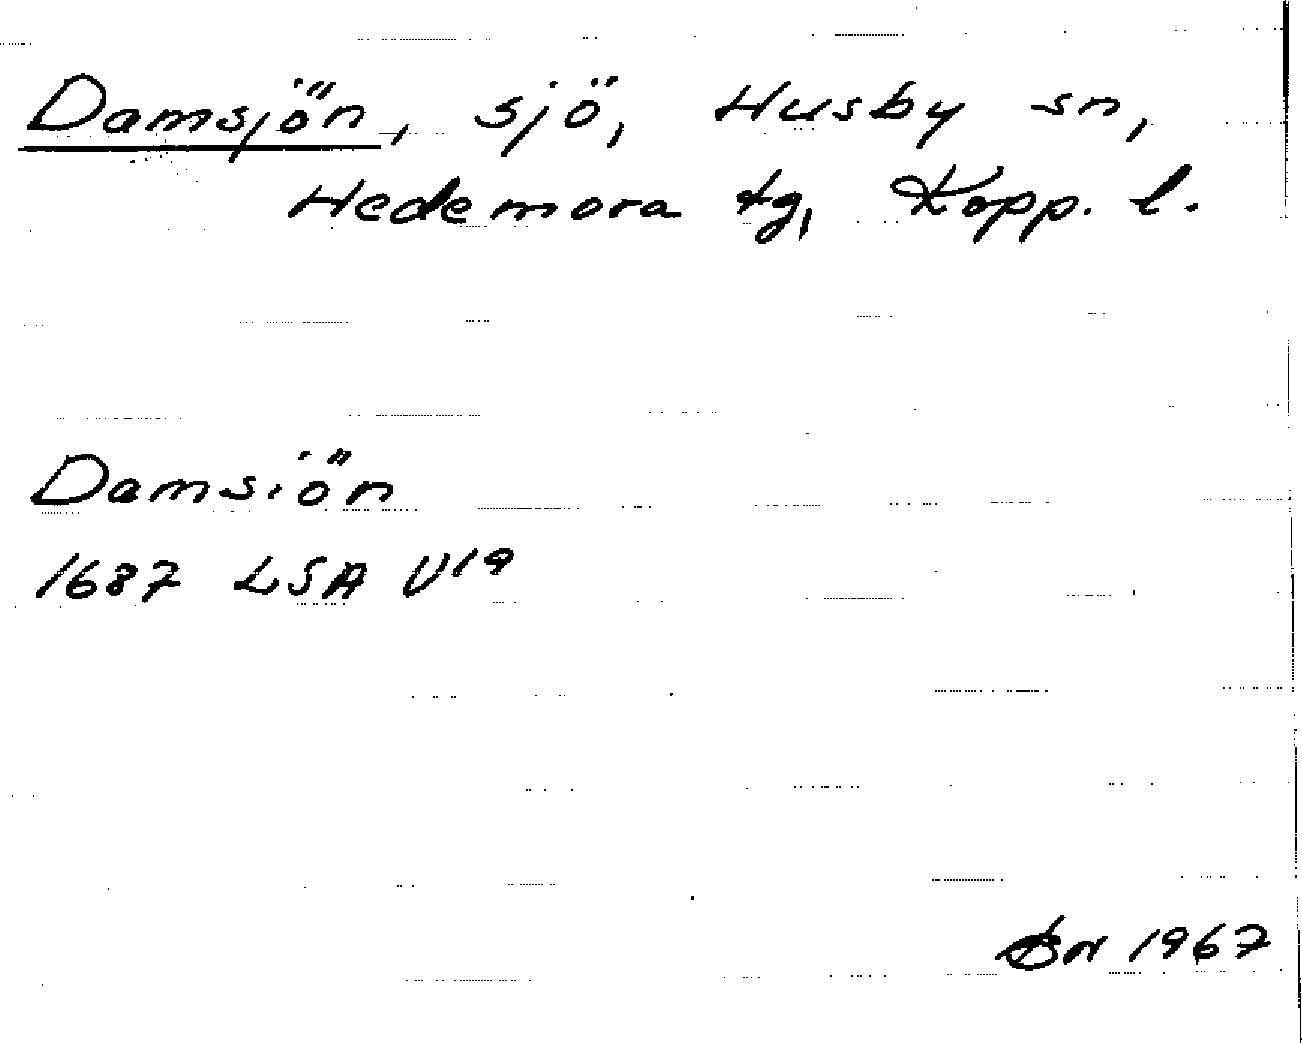 Damsjön, sjö, Husby sn,
Hedemora tg, Kopp. l.
Damsiön
1687 LSA U19
1967